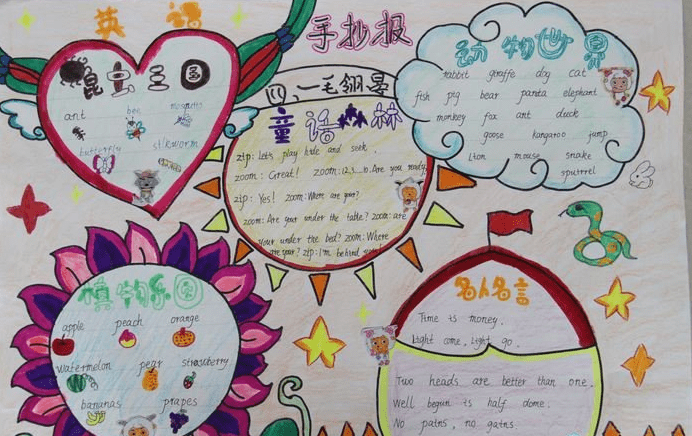 英语
手抄报
昆虫王国
ant bee mosquito
butterfly silkworm
一毛
童话森林
zip: Let's play hide and seek.
zoom: Great! zoom: 1.2.3....10. Are you ready
zip: Yes! zoom: Where are your?
zoom: Are your under the table? zoom: are
your under the bed? zoom: Where
are your? zip: I'm behind
动物世界
rabbit giraffe dog cat
fish pig bear panta elephant
monkey fox ant duck
goose kangaroo jump
Lion mouse snake
squirrel
植物乐园
apple peach orange
watermelon pear strawberry
bananas grapes
名人名言
Time is money.
Light come, Light go.
Two heads are better than one.
Well begun is half done.
No pains, no gains